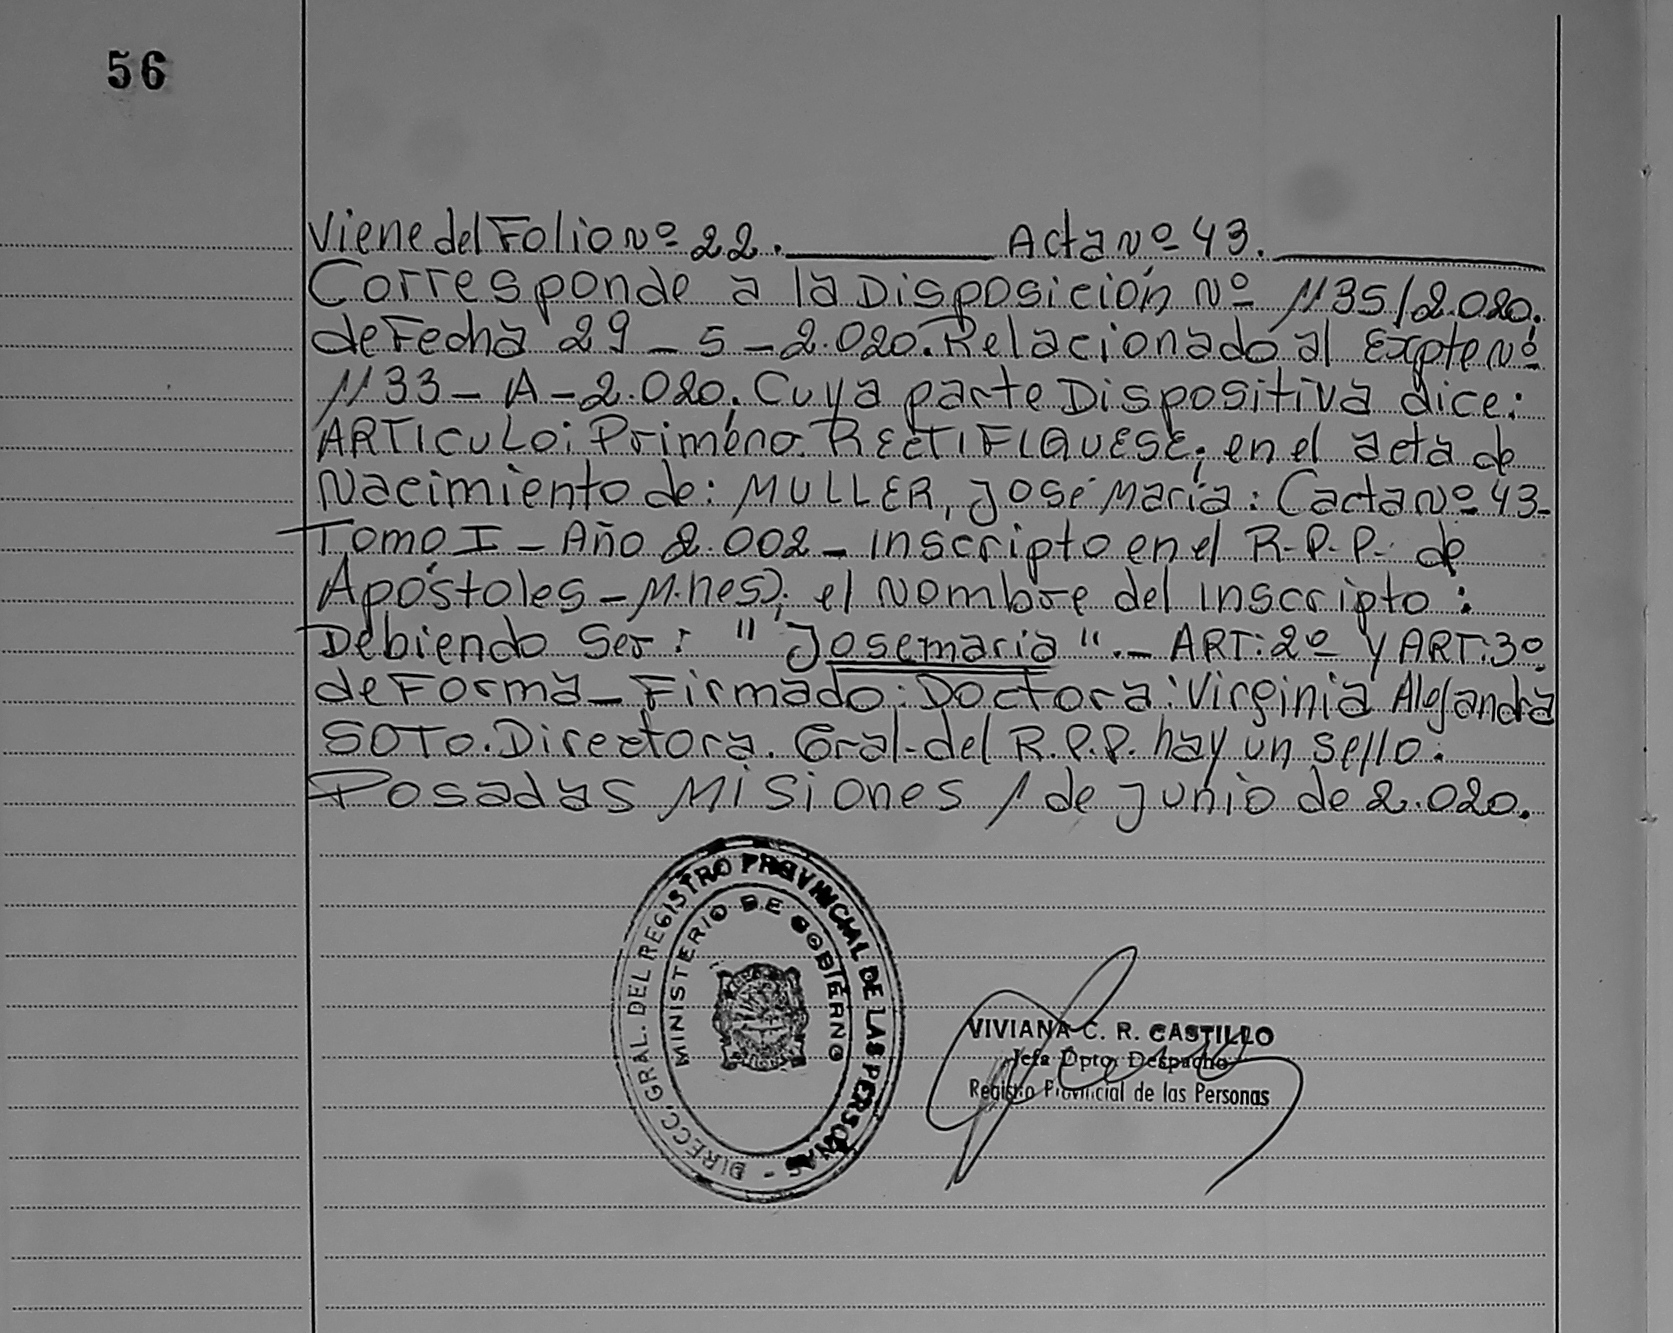 56
Viene del Folio Nº 22. Acta Nº 43.
Corresponde a la Disposición Nº 1135/2.020.
de Fecha 29 - 5 - 2.020. Relacionado al Expte Nº
1133 - A - 2.020. Cuya parte Dispositiva dice:
ARTICULO: Primero. RECTIFIQUESE; en el acta de
Nacimiento de: MULLER, José María: (acta Nº 43-
Tomo I - Año 2.002 - inscripto en el R.P.P. de
Apóstoles - M.nes); el Nombre del inscripto:
Debiendo Ser: "Josemaria".- ART: 2º Y ART: 3º.
de Forma - Firmado: Doctora: Virginia Alejandra
SOTO. Directora. Gral. del R.P.P. hay un sello.
Posadas Misiones 1 de junio de 2.020.
DIRECC. GRAL. DEL REGISTRO PROVINCIAL DE LAS PERSONAS -
MINISTERIO DE GOBIERNO
VIVIANA C. R. CASTILLO
Jefa Dpto Despacho
Registro Provincial de las Personas